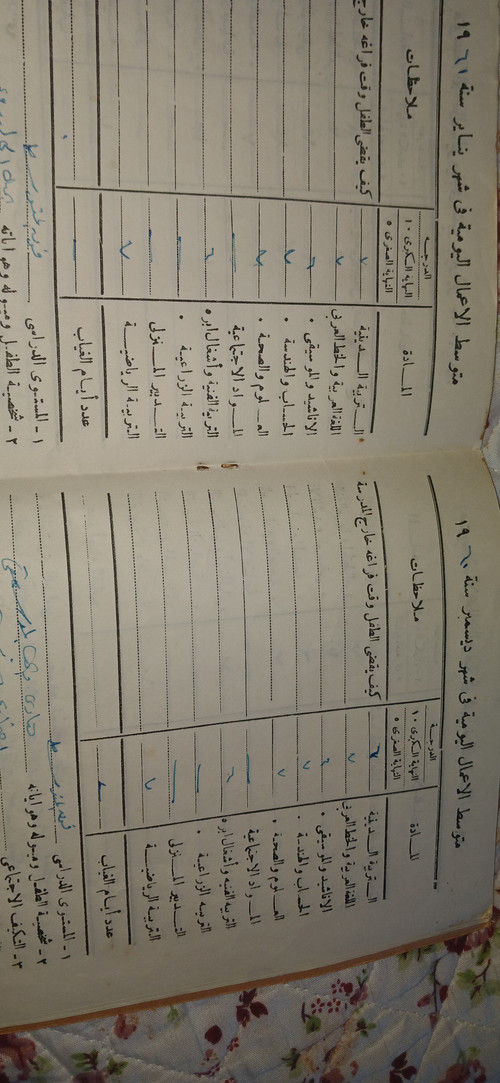 متوسط الاعمال اليومية فى شهر ديسمبر سنة ١٩٦٠
المــادة
الدرجــة
النهاية الكبرى ١٠
النهاية الصغرى ٥
ملاحظات
التربية الدينية ٧ كيف يقضى الطفل وقت فراغه خارج المدرسة
اللغة العربية والخط العربى ٧
الاناشيد والموسيقى ٦
الحساب والهندسة ٧
العلوم والصحة ٧
المواد الاجتماعية —
التربية الفنية وأشغال ابره ٦
التربية الزراعية —
التدبير المنزلى —
التربية الرياضية ٧
عدد أيام الغياب
١ - المستوى الدراسى فوق المتوسط
٢ - شخصية الطفل وميوله وهواياته
٣ - التكيف الاجتماعى
متوسط الاعمال اليومية فى شهر يناير سنة ١٩٦١
المــادة
الدرجــة
النهاية الكبرى ١٠
النهاية الصغرى ٥
ملاحظات
التربية الدينية ٧ كيف يقضى الطفل وقت فراغه خارج
اللغة العربية والخط العربى ٧
الاناشيد والموسيقى ٦
الحساب والهندسة ٧
العلوم والصحة ٧
المواد الاجتماعية —
التربية الفنية وأشغال ابره ٦
التربية الزراعية —
التدبير المنزلى —
التربية الرياضية ٧
عدد أيام الغياب —
١ - المستوى الدراسى فوق المتوسط
٢ - شخصية الطفل وميوله وهواياته